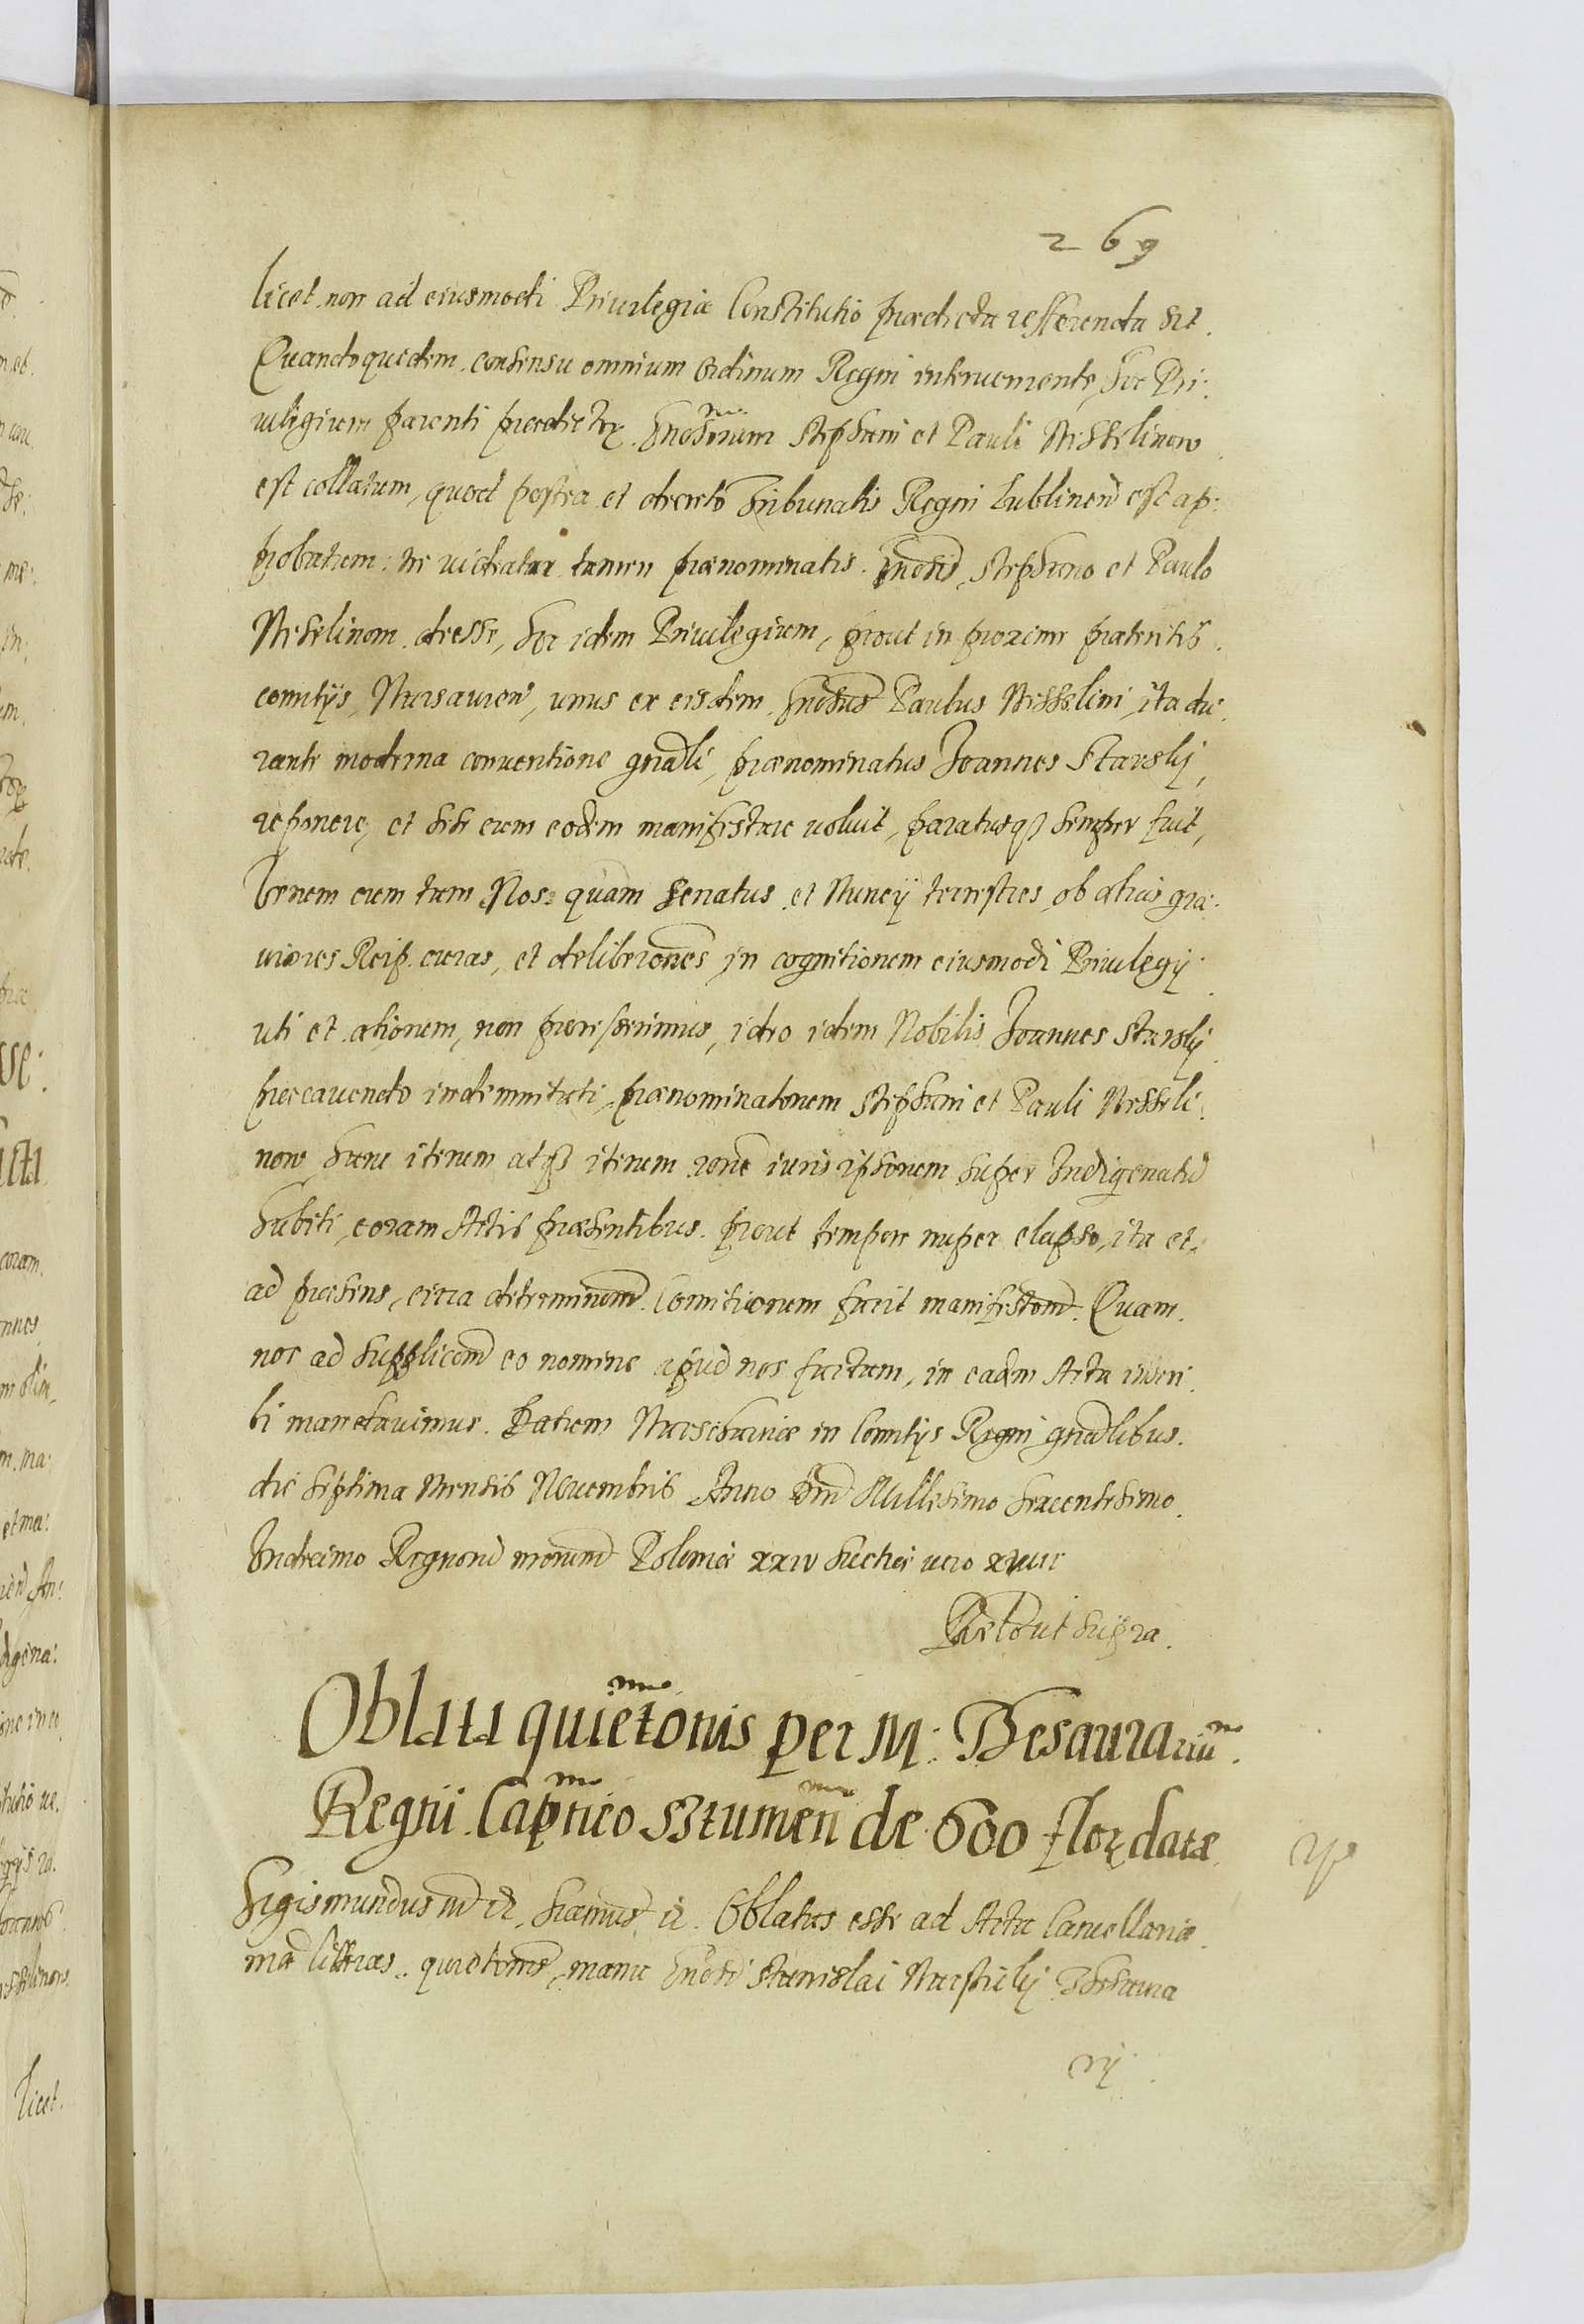 269
licet non ad eiusmodi Priuilegia Constitutio praedicta refferenda sit.
Quandoquidem consensu omnium Ordinum Regni interueniente, hoc Pri:
uilegium parenti praedictor. Gnosorum Stephani et Pauli Nesselinow
est collatum, quod postea et decreto Tribunalis Regni Lublinen est ap:
probatum: ne uideatur tamen praenominatis Gnosis Stephano et Paulo
Neselinom deesse, hoc idem Priuilegium, prout in proxime praeteritis
comitijs Warsauien, unus ex eisdem Gnosus Paulus Nesselini, ita du:
rante moderna conuentione gnali, praenominatus Joannes Starskij,
reponere, et sese cum eodem manifestare uoluit, paratusq3 semper fuit,
Verum cum tum Nos quam Senatus et Nuncij terrestres ob alias gra:
uiores Reip. curas, et deliberones in cognitionem eiusmodi Priuilegij
uti et ationem, non processerimus, ideo idem Nobilis Joannes Starskij
praecauendo indemnitati praenominatorum Stephani et Pauli Nesseli:
now hanc iterum atq3 iterum rone iuris ipsorum super Indigenatu
habiti, coram Actis praesentibus prout tempore nuper elapso, ita et
ad praesens, circa determinonem Comitiorum facit manifestonem. Quam
nos ad supplicom eo nomine apud nos factam, in eadem Acta inscri:
bi mandauimus. Datum Warschauiae in Comitijs Regni gnalibus.
die septima Mensis Nouembris Anno Dni Millesimo Sexcentesimo
Undecimo Regnorum nrorum Poloniae xxiv Suetiae uero xviii
Relo ut supra.
Oblata quietonis per M: Thesaurariu
Regni Capneo Sztumen de 600 flor datae
Sigismundus III etc. Significamus etc. Oblatas esse ad Acta Cancellariae
nrae litteras quietonis, manu Gnosi Stanislai Warszickij Thesaura
rij